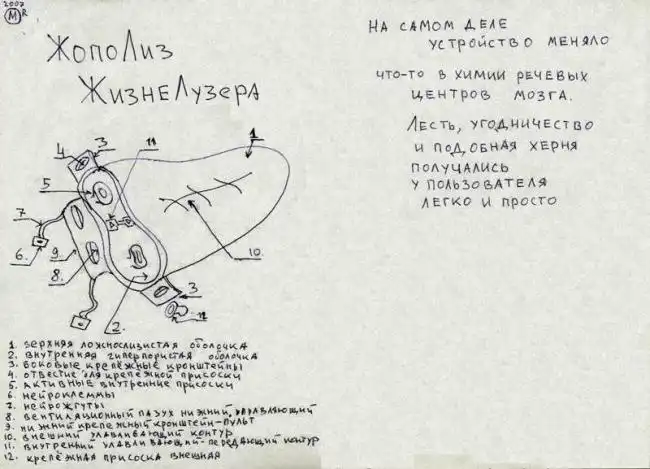 2007
M R
ЖопоЛиз
ЖизнеЛузера
1
3
4
11
5
7
6.
9.
8.
10.
3
12
2.
1. верхняя ложнослизистая оболочка
2. внутренняя гиперпористая оболочка
3. боковые крепёжные кронштейны
4. отвестие для крепёжной присоски
5. активные внутренние присоски
6. нейроклеммы
7. нейрожгуты
8. вентиляционный пазух нижний, управляющий
9. нижний крепёжный кронштейн-пульт
10. внешний улавливающий контур
11. внутренний улавливающий-передающий контур
12. крепёжная присоска внешняя
НА САМОМ ДЕЛЕ
УСТРОЙСТВО МЕНЯЛО
ЧТО-ТО В ХИМИИ РЕЧЕВЫХ
ЦЕНТРОВ МОЗГА.
ЛЕСТЬ, УГОДНИЧЕСТВО
И ПОДОБНАЯ ХЕРНЯ
ПОЛУЧАЛИСЬ
У ПОЛЬЗОВАТЕЛЯ
ЛЕГКО И ПРОСТО